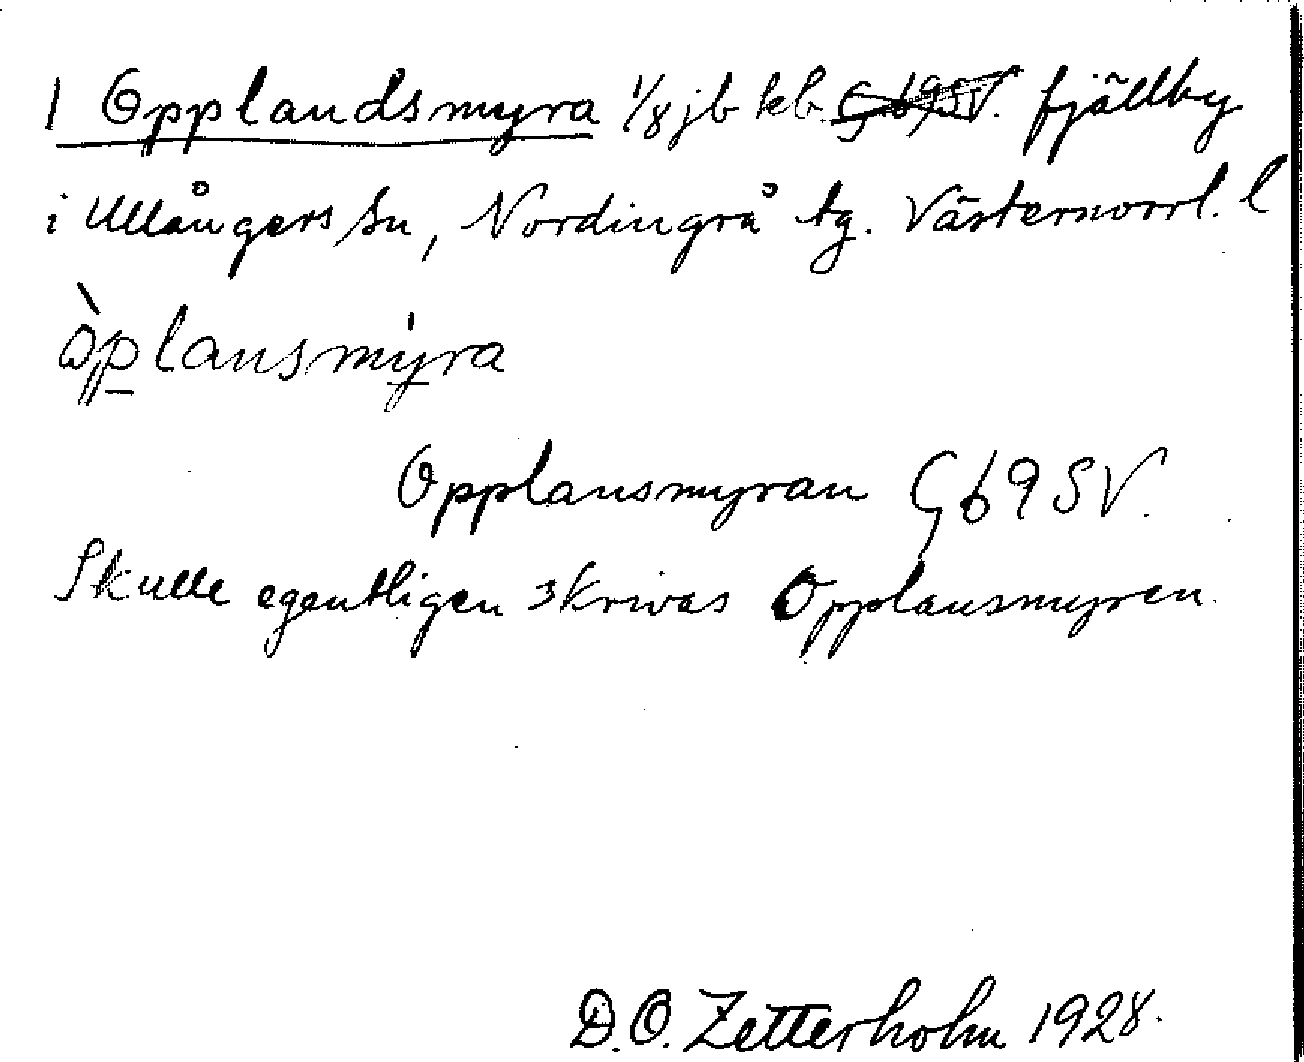 1 Opplandsmyra 1/8 jb kb G 69 SV. fjällby
i Ullångers sn, Nordingrå tg. Västernorrl. l
òplansmy̍ra
Opplansmyran G 69 SV.
Skulle egentligen skrivas Opplansmyren.
D.O. Zetterholm 1928.